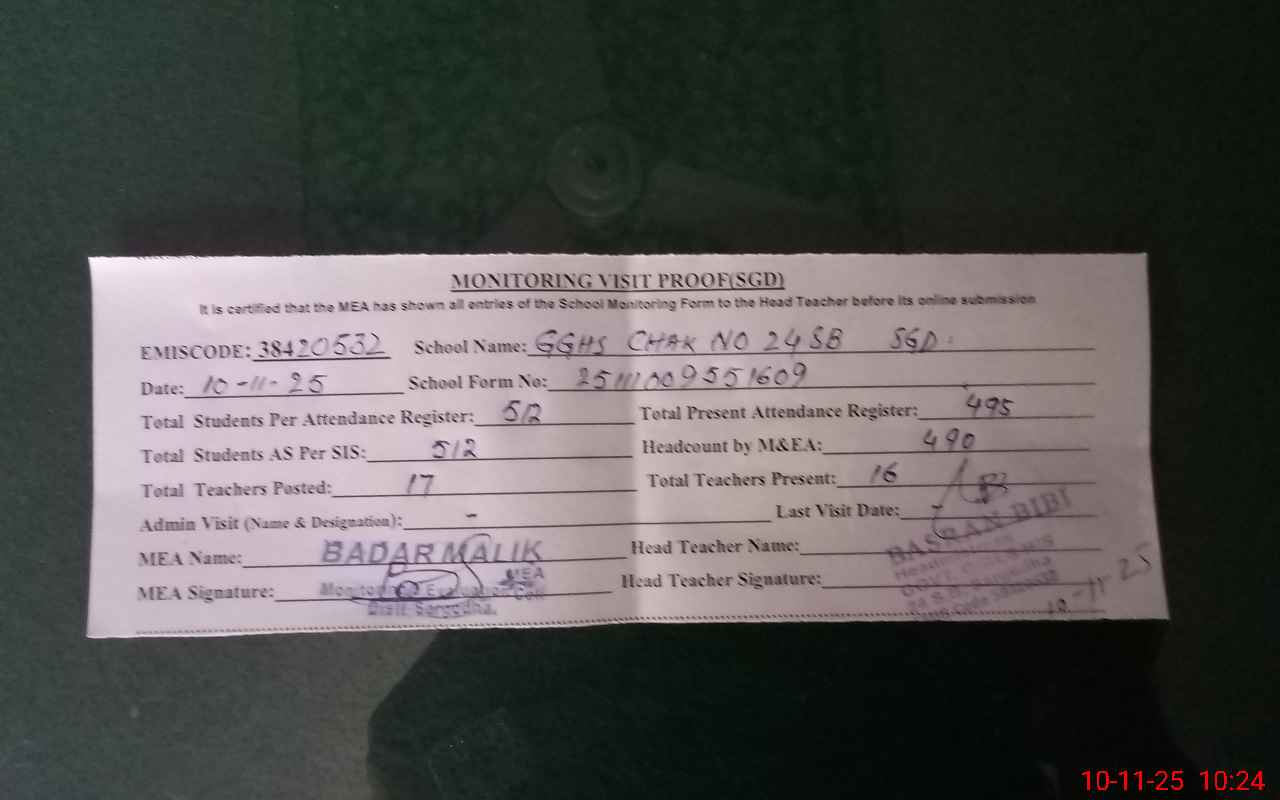 MONITORING VISIT PROOF(SGD)
It is certified that the MEA has shown all entries of the School Monitoring Form to the Head Teacher before its online submission
EMISCODE: 38420532 School Name: GGHS CHAK NO 24 SB SGD.
Date: 10-11-25 School Form No:
Total Students Per Attendance Register: 512 Total Present Attendance Register: 495
Total Students AS Per SIS: 512 Headcount by M&EA: 490
Total Teachers Posted: 17 Total Teachers Present: 16
Admin Visit (Name & Designation): - Last Visit Date:
MEA Name: BADAR MALIK Head Teacher Name: BASRAN BIBI
MEA Signature: MEA Head Teacher Signature:
Distt Sargodha.
10-11-25
10-11-25 10:24